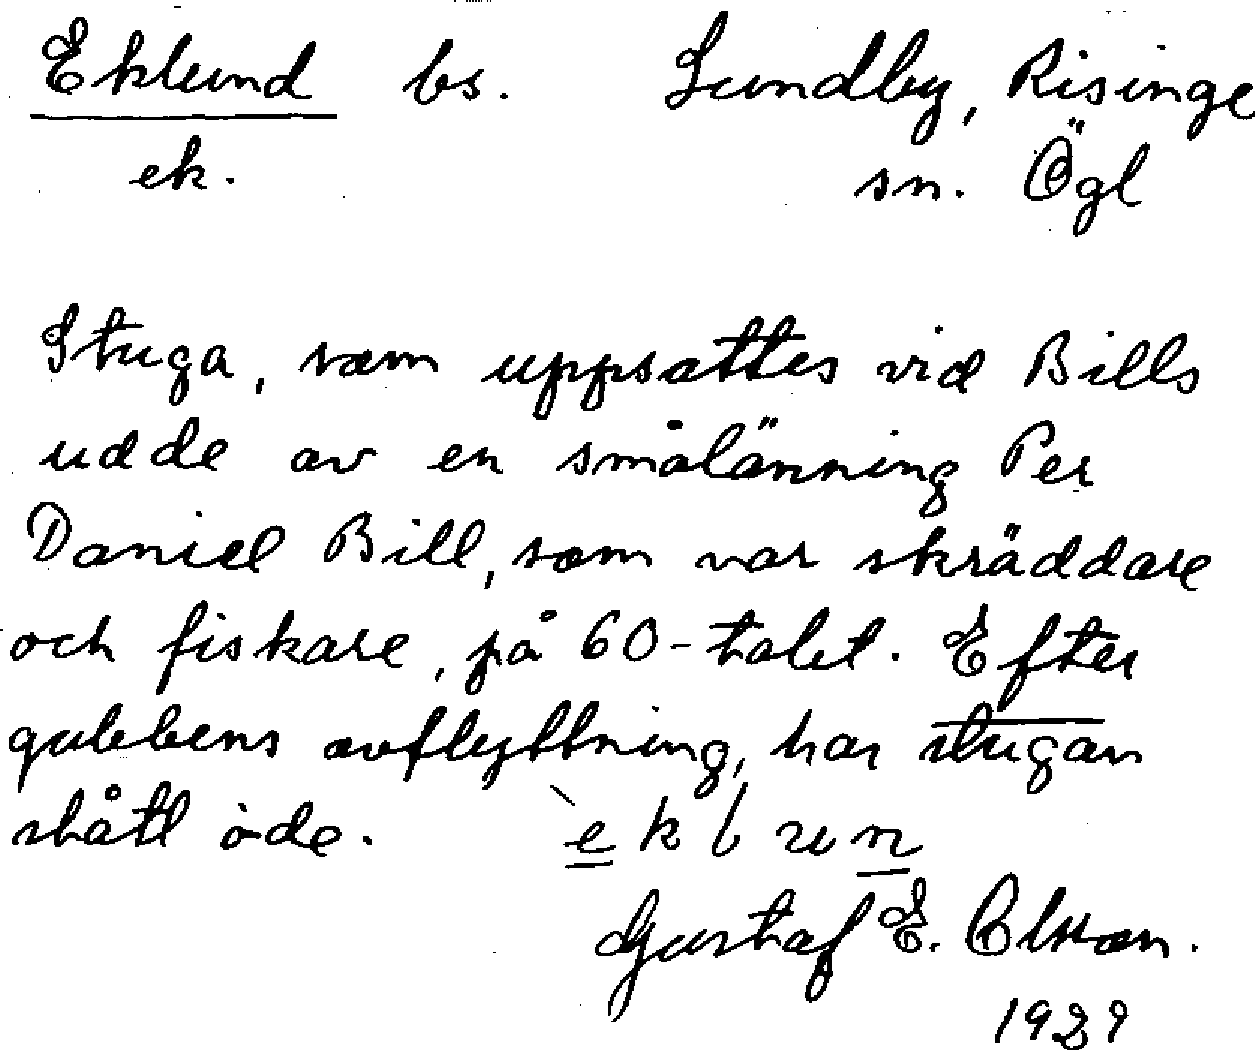 Eklund bs. Lundby, Risinge
ek. sn. Ögl
Stuga, som uppsattes vid Bills
udde av en smålänning Per
Daniel Bill, som var skräddare
och fiskare, på 60-talet. Efter
gubbens avflyttning, har stugan
stått öde. èklun
Gustaf E. Olsson.
1929